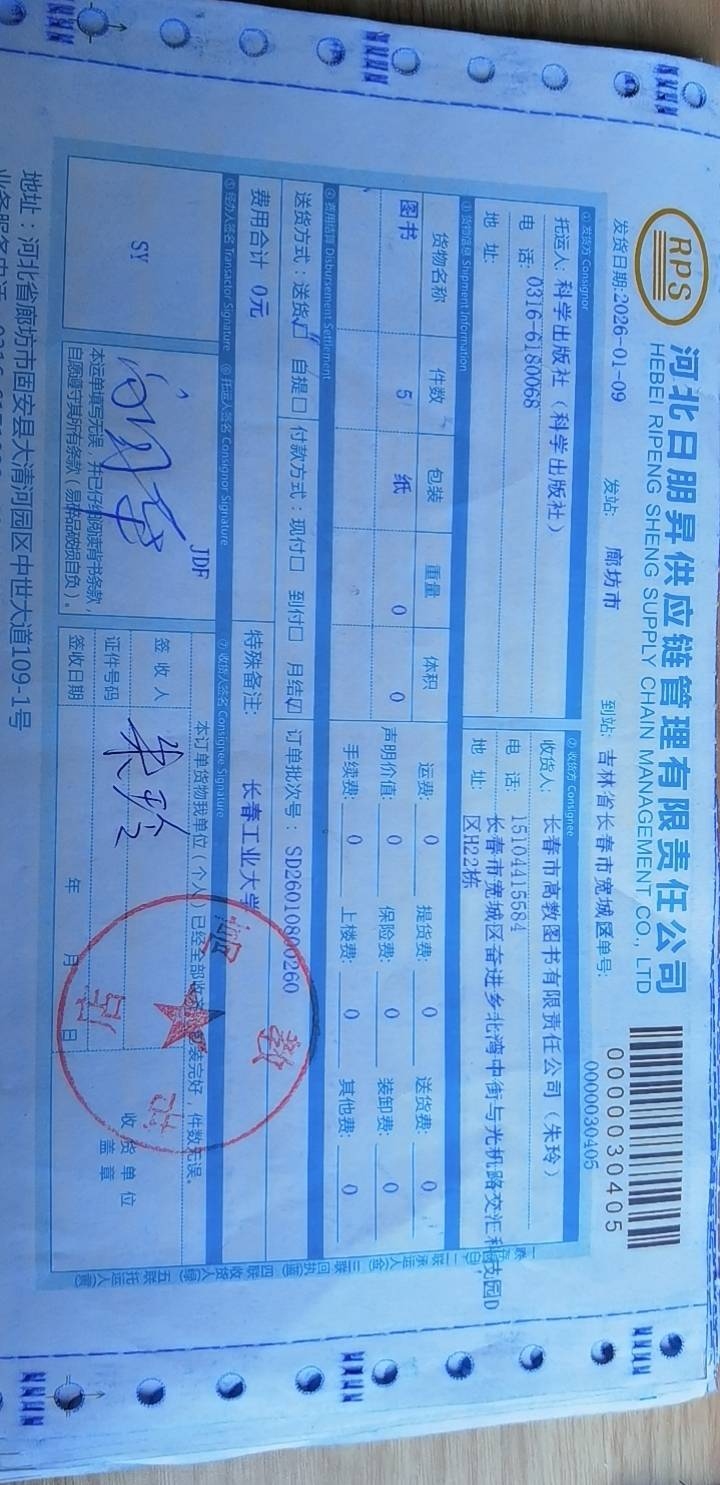 RPS
河北日朋昇供应链管理有限责任公司
HEBEI RIPENG SHENG SUPPLY CHAIN MANAGEMENT CO., LTD
0000030405
发货日期:2026-01-09 发站: 廊坊市 到站: 吉林省长春市宽城区 单号: 0000030405
① 发货方 Consignor
托运人: 科学出版社（科学出版社）
电 话: 0316-6180068
地 址:
② 收货方 Consignee
收货人: 长春市高教图书有限责任公司（朱玲）
电 话: 15104415584
地 址: 长春市宽城区奋进乡北湾中街与光机路交汇
区H22栋
③ 货物信息 Shipment Information
货物名称 件数 包装 重量 体积
图书 5 纸 0 0
运费: 0 提货费: 0 送货费: 0
声明价值: 0 保险费: 0 装卸费: 0
手续费: 0 上楼费: 0 其他费: 0
④ 费用结算 Disbursement Settlement
送货方式: 送货☑ 自提□ 付款方式: 现付□ 到付□ 月结☑ 订单批次号: SD26010800260
费用合计 0元 特殊备注: 长春工业大学
⑤ 经办人签名 Transactor Signature ⑥ 托运人签名 Consignor Signature ⑦ 收货人签名 Consignee Signature
SY
JDF
本运单填写无误，并已仔细阅读背书条款，
自愿遵守其所有条款（易碎品破损自负）。
本订单货物我单位（个人）已经全部收
装完好，件数无误。
签 收 人 朱玲
证件号码
签收日期 年 月 日
收 货 单 位
盖 章
地址：河北省廊坊市固安县大清河园区中世大道109-1号